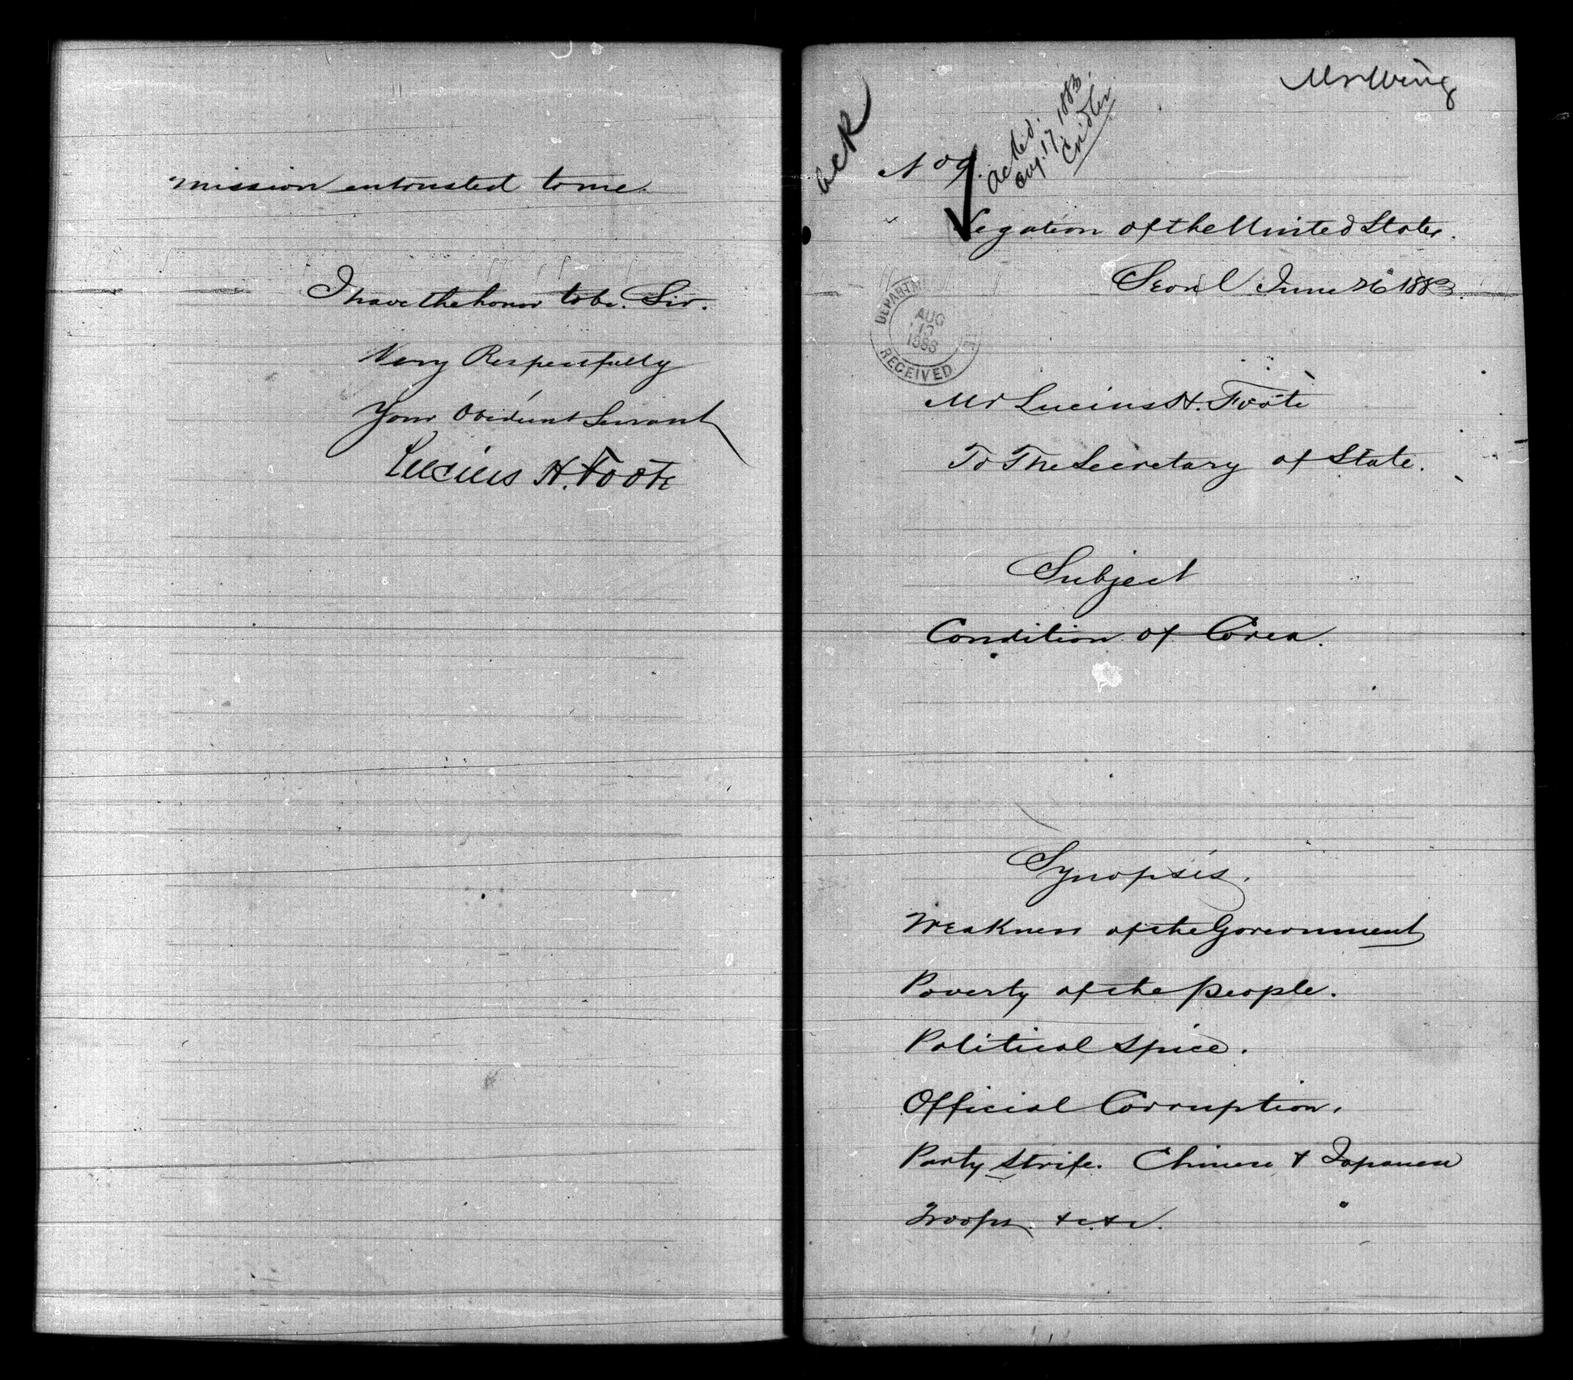 mission entrusted to me.
I have the honor to be. Sir.
Very Respectfully
Your Obedient Servant
Lucius H. Foote
Mr Wing
ack
No 9.
Acked.
Aug. 17, 1883.
Cridler
Legation of the United States.
Seoul June 26 1883.
DEPARTM
AUG
13
1883
RECEIVED
Mr Lucius H. Foote
To The Secretary of State.
Subject
Condition of Corea.
Synopsis.
Weakness of the Government
Poverty of the people.
Political Spice.
Official Corruption.
Party Strife. Chinese & Japanese
Troops. &c. &c.